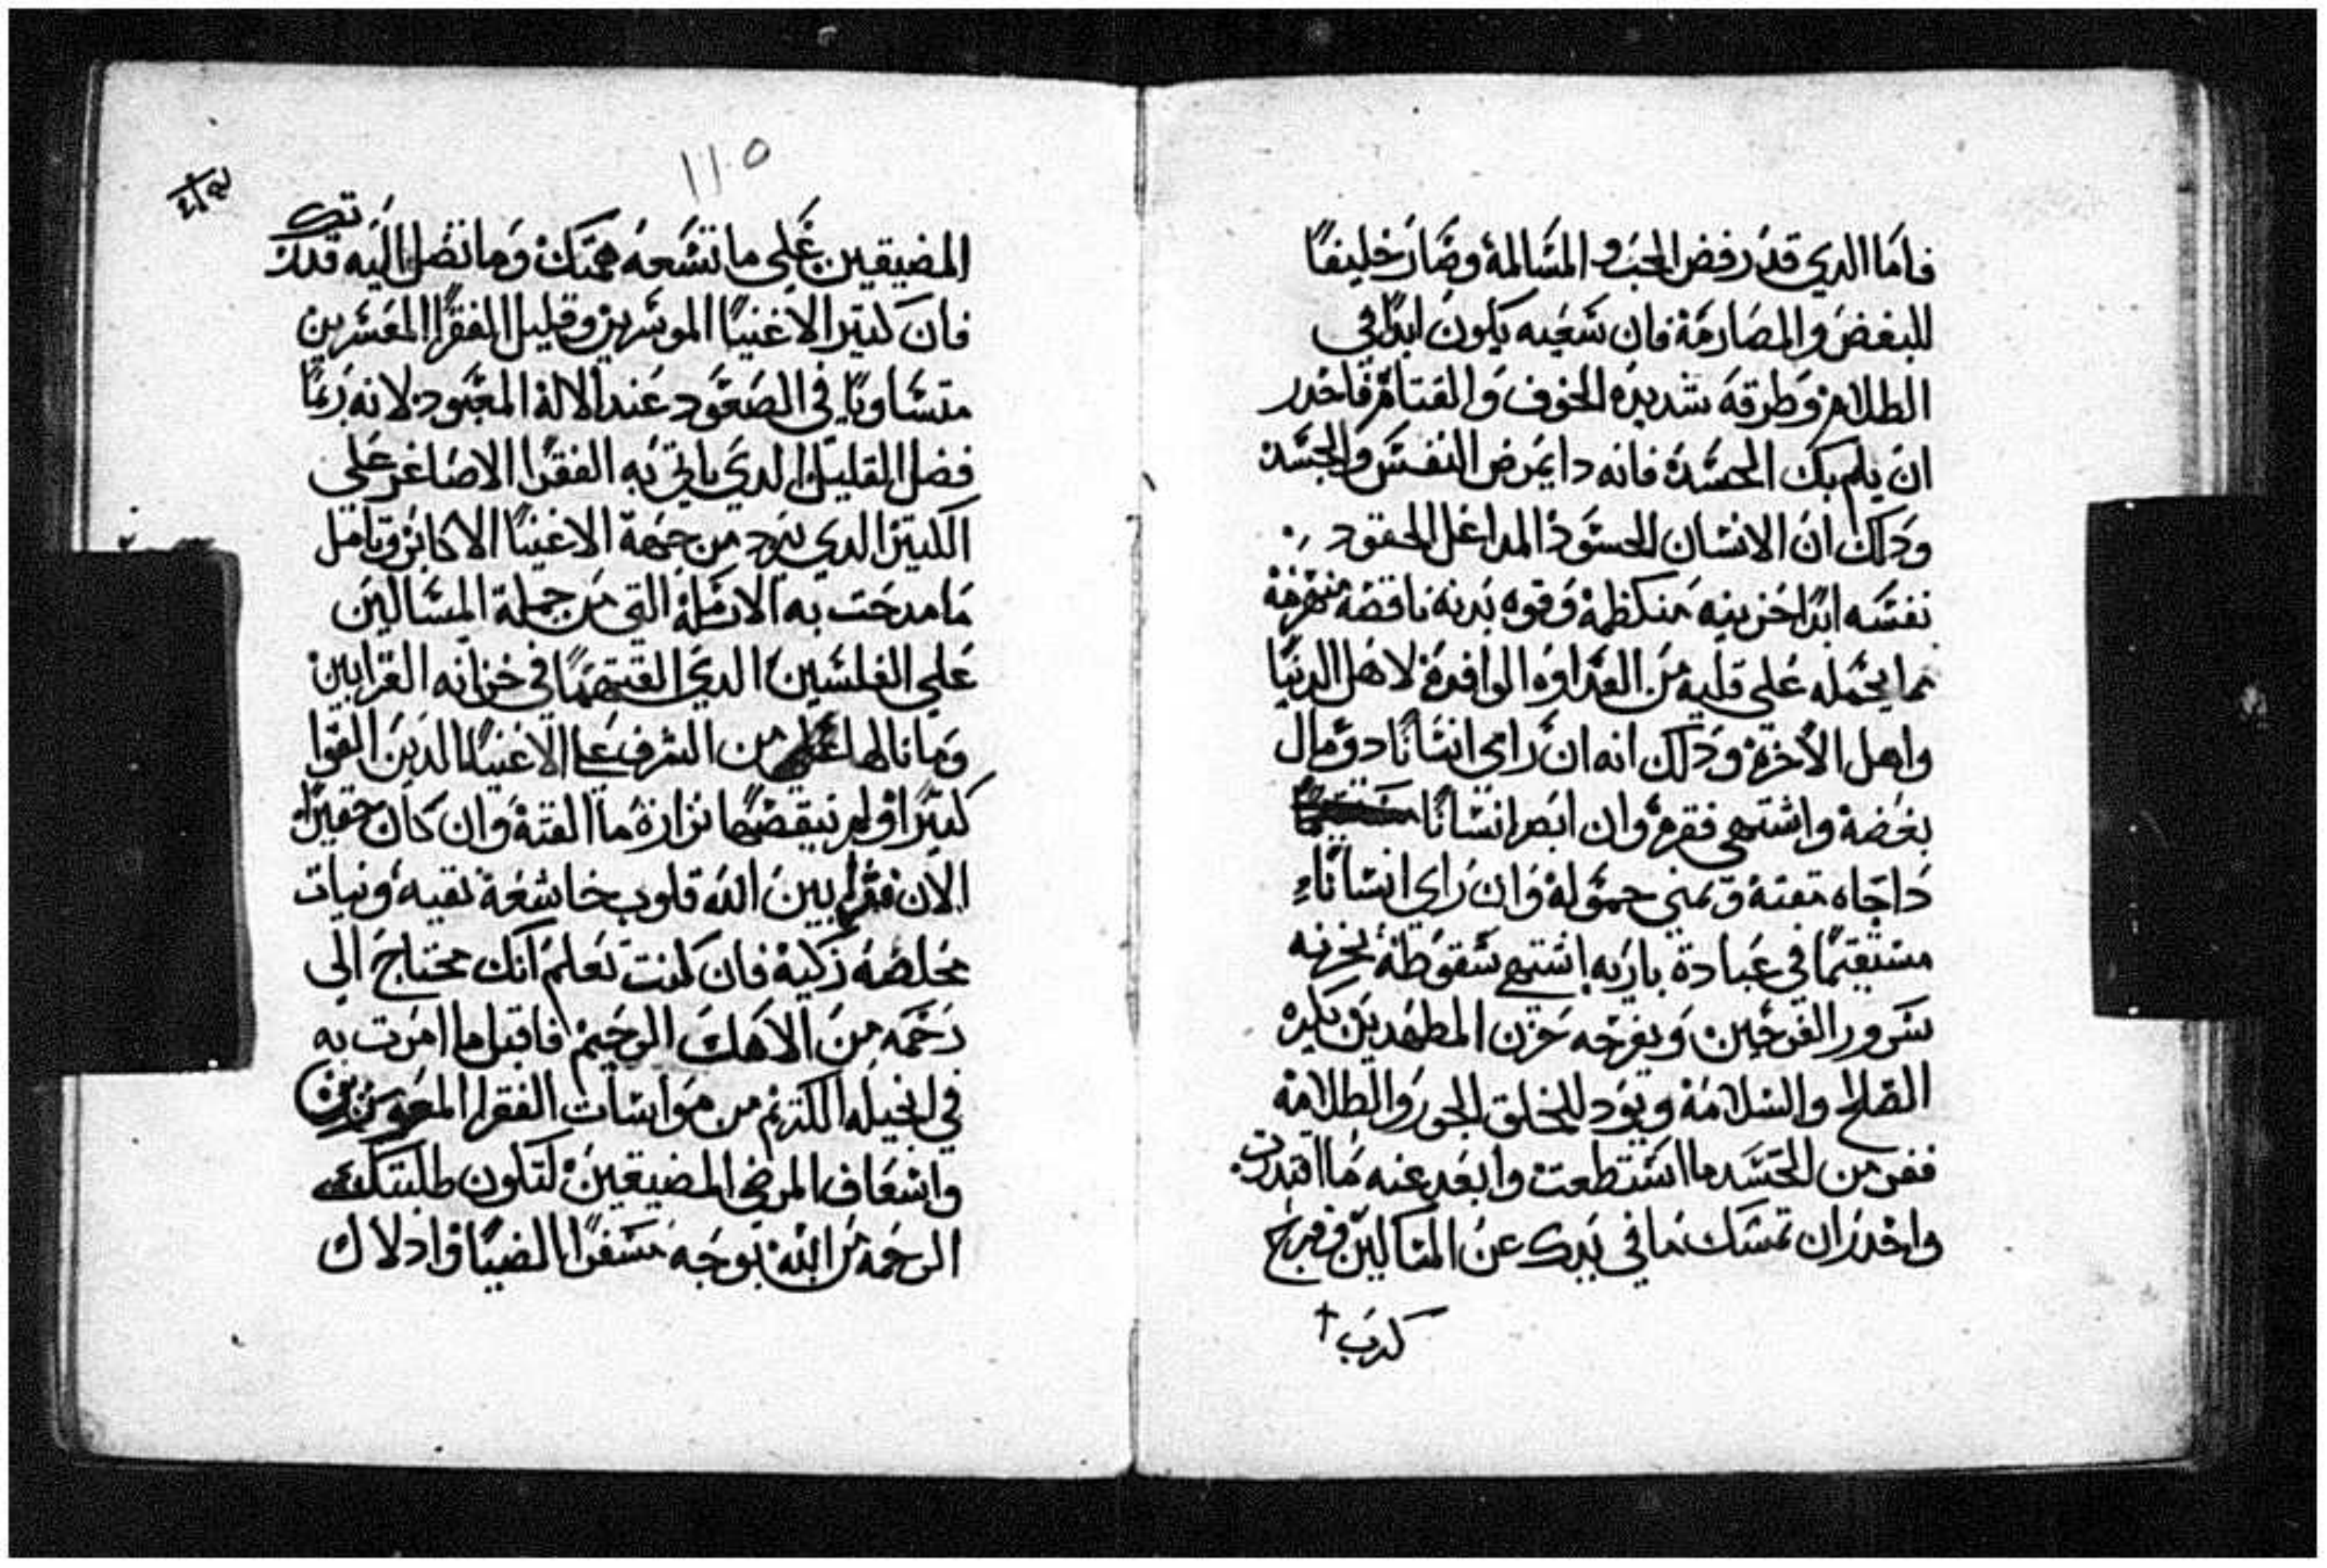 فاما الدي قد رفض الحب و المسالمة وصار خليفًا
للبغض والمصارمة فان سعيه يكون ابدًا في
الظلام وطرقه شديدة الخوف والقتام فاحدر
ان يلم بك الحسد فانه دا يمرض النفس والجسد
ودلك ان الانسان الحسود المداغل الحقود
نفسه ابدًا حزينه منكظمة وقوه بدنه ناقصة منهزمة
مما يحمله على قلبه من العداوه الوافدة لاهل الدنيا
واهل الاخرة ودلك انه ان راي انسانًا دو مال
بغضة واشتهي فقره وان ابصر انسانًا
داجاه مقته وتمني حموله وان راي انسانًا
مستقيمًا في عبادة باريه اشتهي سقوطة يحزنه
سرور الفرحين ويفرحه حزن المطهدين يكره
الصلح والسلامة ويود للخلق الجور والظلامة
ففر من الحسد ما استطعت وابعد عنه ما اقتدرت
واحدر ان تمسك ما في يدك عن المساكين وفرج
كرب
١١٥
المضيقين علي ما تسعه همتك وما تصل اليه قدرتك
فان كتير الاغنيا الموسرين وقليل الفقرا المعسرين
متساويًا في الصعود عند الاله المعبود لانه ربما
فضل القليل الدي ياتي به الفقرا الاصاغر علي
الكتير الدي يرد من جهة الاغنيا الاكابر وتامل
ما مدحت به الارملة التي من جملة المساكين
علي الفلسين الدي القتهما في خزانه القرابين
وما نالها من الشرف علي الاغنيا الدين القوا
كتيرًا ولم ينقصها نزارة ما القته وان كان حقيرًا
الان فقرا بين الله قلوب خاشعة نقيه ونيات
مخلصه زكية فان كنت تعلم انك محتاج الي
رحمه من الاهك الرحيم فاقبل ما امرت به
في انجيله الكريم من مواسات الفقرا المعوزين
واسعاف المرضي المضيقين لتكون طلبتك
الرحمه من الله بوجه مسفرًا الضيا وادلاك